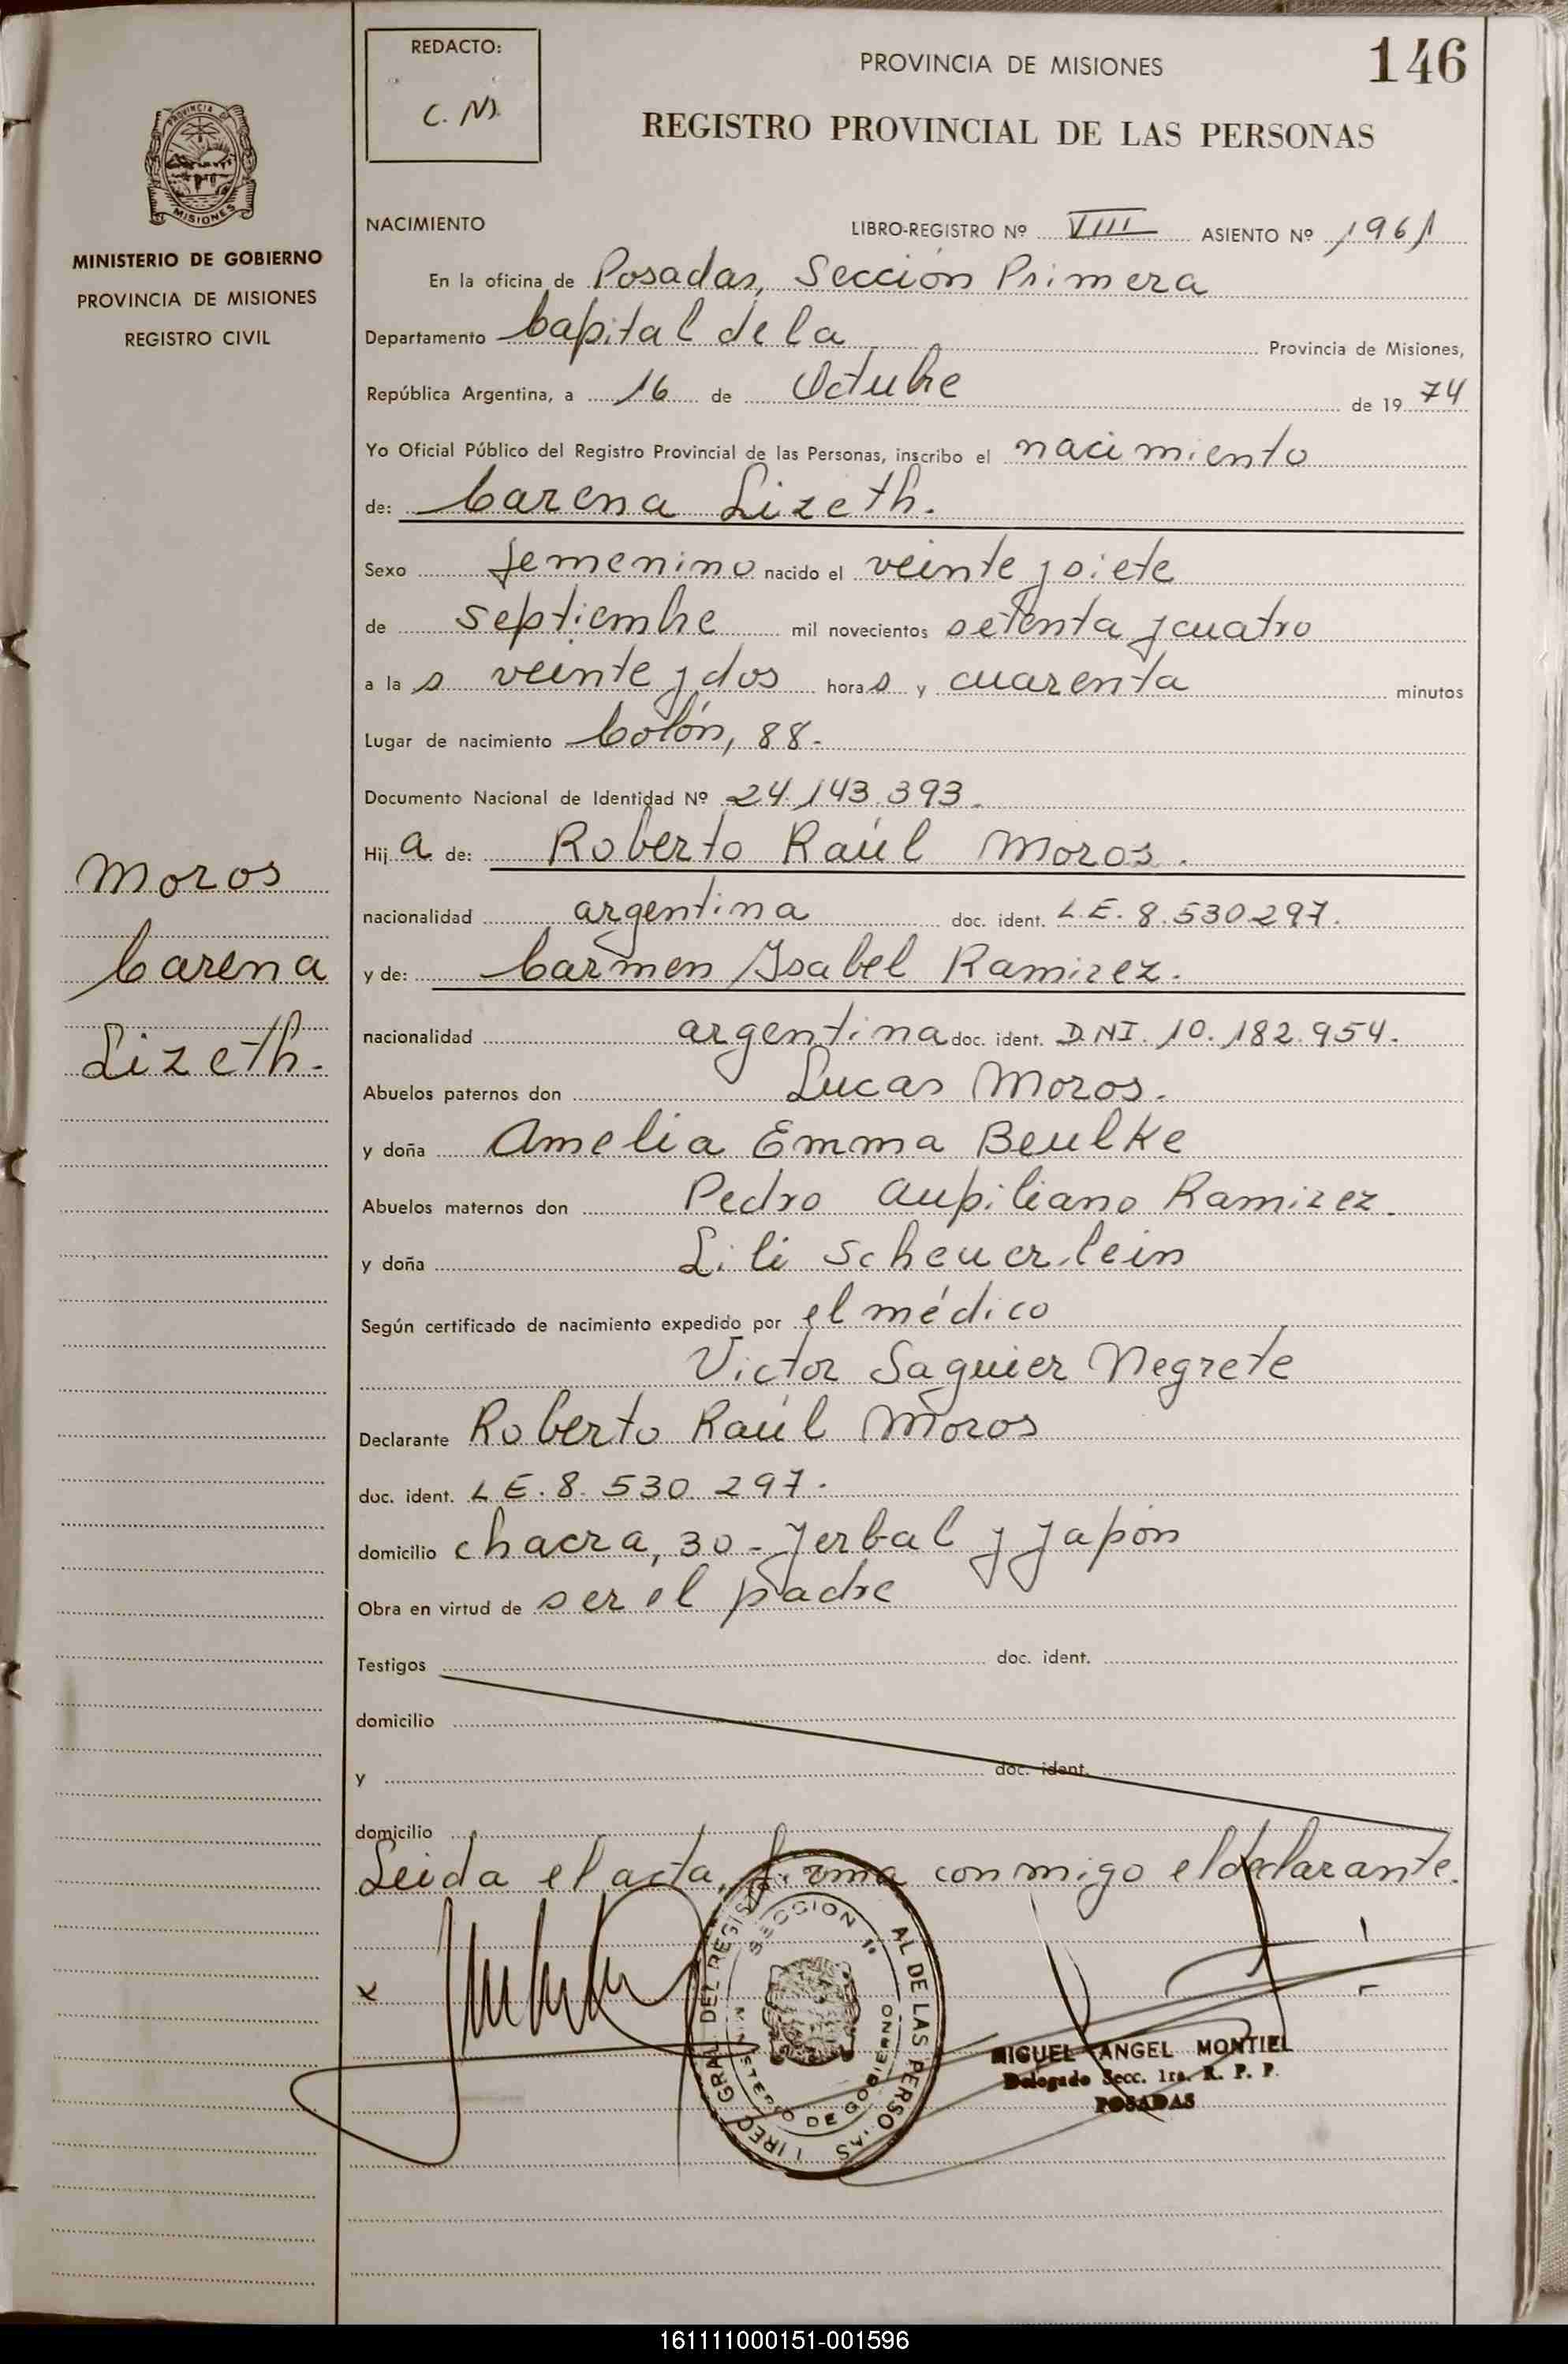 REDACTO:
C. M.
PROVINCIA DE MISIONES
146
REGISTRO PROVINCIAL DE LAS PERSONAS
PROVINCIA
MISIONES
MINISTERIO DE GOBIERNO
PROVINCIA DE MISIONES
REGISTRO CIVIL
NACIMIENTO LIBRO-REGISTRO Nº VIII ASIENTO Nº 1961
En la oficina de Posadas, Sección Primera
Departamento Capital de la Provincia de Misiones,
República Argentina, a 16 de Octubre de 19 74
Yo Oficial Público del Registro Provincial de las Personas, inscribo el nacimiento
de: Carena Lizeth.
Sexo femenino nacido el veinte y siete
de septiembre mil novecientos setenta y cuatro
a la s veinte y dos hora s y cuarenta minutos
Lugar de nacimiento Colón, 88.
Documento Nacional de Identidad Nº 24.143.393.
Hij a de: Roberto Raúl Moros.
nacionalidad argentina doc. ident. L.E. 8.530.297.
y de: Carmen Isabel Ramirez.
nacionalidad argentina doc. ident. D.N.I. 10.182.954.
Abuelos paternos don Lucas Moros.
y doña Amelia Emma Beulke
Abuelos maternos don Pedro Aupiliano Ramirez.
y doña Lili Scheuerlein
Según certificado de nacimiento expedido por el médico
Victor Saguier Negrete
Declarante Roberto Raúl Moros
doc. ident. L E. 8. 530 297.
domicilio chacra, 30 - Yerbal y Japón
Obra en virtud de ser el padre
Testigos doc. ident.
domicilio
y doc. ident.
domicilio
Leida el acta, firma conmigo el declarante.
Moros
Carena
Lizeth.
x
SECCION 1ª
MINISTERIO DE GOBIERNO
MIGUEL ANGEL MONTIEL
Delegado Secc. 1ra. R. P. P.
POSADAS
161111000151-001596